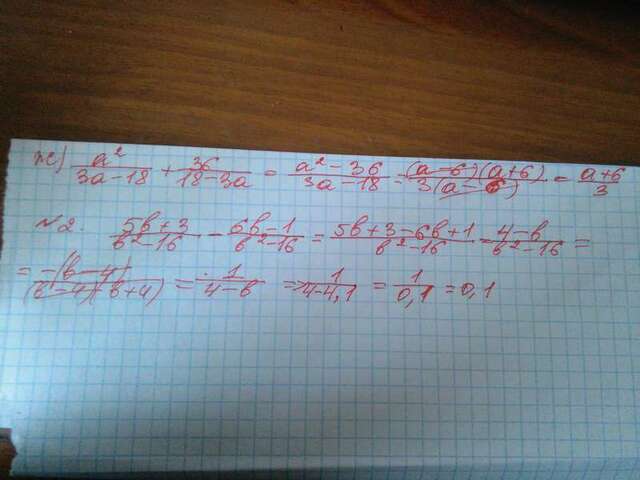 ж) a²/(3a-18) + 36/(18-3a) = (a²-36)/(3a-18) = (a-6)(a+6)/3(a-6) = (a+6)/3
№2. (5b+3)/(b²-16) - (6b-1)/(b²-16) = (5b+3-6b+1)/(b²-16) = (4-b)/(b²-16) =
= -(b-4)/(b-4)(b+4) = 1/(4-b) = 1/(4-4,1) = 1/0,1 = 0,1